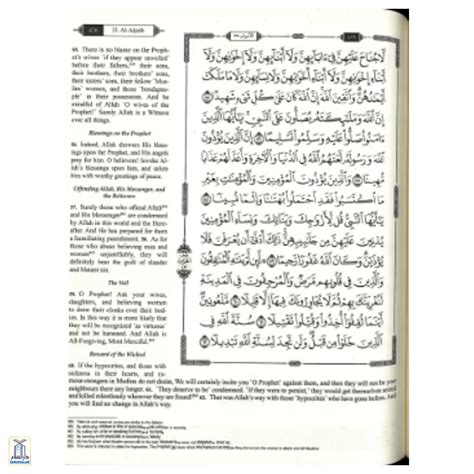 33. Al-Aḥzâb
55. There is no blame on the Proph-
et's wives 'if they appear unveiled'
before their fathers, their sons,
their brothers, their brothers' sons,
their sisters' sons, their fellow 'Mus-
lim' women, and those 'bondspeo-
ple' in their possession. And be
mindful of Allah 'O wives of the
Prophet!' Surely Allah is a Witness
over all things.
Blessings on the Prophet
56. Indeed, Allah showers His bless-
ings upon the Prophet, and His angels
pray for him. O believers! Invoke Al-
lah's blessings upon him, and salute
him with worthy greetings of peace.
Offending Allah, His Messenger, and
the Believers
57. Surely those who offend Allah
and His Messenger are condemned
by Allah in this world and the Here-
after. And He has prepared for them
a humiliating punishment. 58. As for
those who abuse believing men and
women unjustifiably, they will
definitely bear the guilt of slander
and blatant sin.
The Veil
59. O Prophet! Ask your wives,
daughters, and believing women
to draw their cloaks over their bod-
ies. In this way it is more likely that
they will be recognized 'as virtuous'
and not be harassed. And Allah is
All-Forgiving, Most Merciful.
Reward of the Wicked
60. If the hypocrites, and those with
sickness in their hearts, and
rumour-mongers in Medina do not desist, We will certainly incite you 'O Prophet' against them, and then they will not be your
neighbours there any longer. 61. 'They deserve to be' condemned. 'If they were to persist,' they would get themselves seized
and killed relentlessly wherever they are found! 62. That was Allah's way with those 'hypocrites' who have gone before. And
you will find no change in Allah's way.
لَّا جُنَاحَ عَلَيْهِنَّ فِي ءَابَآئِهِنَّ وَلَا أَبْنَآئِهِنَّ وَلَا إِخْوَٰنِهِنَّ وَلَا
أَبْنَآءِ إِخْوَٰنِهِنَّ وَلَا أَبْنَآءِ أَخَوَٰتِهِنَّ وَلَا نِسَآئِهِنَّ وَلَا مَا مَلَكَتْ
أَيْمَٰنُهُنَّ وَٱتَّقِينَ ٱللَّهَ إِنَّ ٱللَّهَ كَانَ عَلَىٰ كُلِّ شَيْءٍ شَهِيدًا ٥٥
إِنَّ ٱللَّهَ وَمَلَٰٓئِكَتَهُۥ يُصَلُّونَ عَلَى ٱلنَّبِيِّ يَٰٓأَيُّهَا ٱلَّذِينَ
ءَامَنُوا۟ صَلُّوا۟ عَلَيْهِ وَسَلِّمُوا۟ تَسْلِيمًا ٥٦ إِنَّ ٱلَّذِينَ يُؤْذُونَ
ٱللَّهَ وَرَسُولَهُۥ لَعَنَهُمُ ٱللَّهُ فِي ٱلدُّنْيَا وَٱلْءَاخِرَةِ وَأَعَدَّ لَهُمْ عَذَابًا
مُّهِينًا ٥٧ وَٱلَّذِينَ يُؤْذُونَ ٱلْمُؤْمِنِينَ وَٱلْمُؤْمِنَٰتِ بِغَيْرِ
مَا ٱكْتَسَبُوا۟ فَقَدِ ٱحْتَمَلُوا۟ بُهْتَٰنًا وَإِثْمًا مُّبِينًا ٥٨
يَٰٓأَيُّهَا ٱلنَّبِيُّ قُل لِّأَزْوَٰجِكَ وَبَنَاتِكَ وَنِسَآءِ ٱلْمُؤْمِنِينَ
يُدْنِينَ عَلَيْهِنَّ مِن جَلَٰبِيبِهِنَّ ذَٰلِكَ أَدْنَىٰٓ أَن يُعْرَفْنَ فَلَا
يُؤْذَيْنَ وَكَانَ ٱللَّهُ غَفُورًا رَّحِيمًا ٥٩ لَّئِن لَّمْ يَنتَهِ ٱلْمُنَٰفِقُونَ
وَٱلَّذِينَ فِي قُلُوبِهِم مَّرَضٌ وَٱلْمُرْجِفُونَ فِي ٱلْمَدِينَةِ
لَنُغْرِيَنَّكَ بِهِمْ ثُمَّ لَا يُجَاوِرُونَكَ فِيهَآ إِلَّا قَلِيلًا ٦٠ مَّلْعُونِينَ
أَيْنَمَا ثُقِفُوٓا۟ أُخِذُوا۟ وَقُتِّلُوا۟ تَقْتِيلًا ٦١ سُنَّةَ ٱللَّهِ فِي
ٱلَّذِينَ خَلَوْا۟ مِن قَبْلُ وَلَن تَجِدَ لِسُنَّةِ ٱللَّهِ تَبْدِيلًا ٦٢